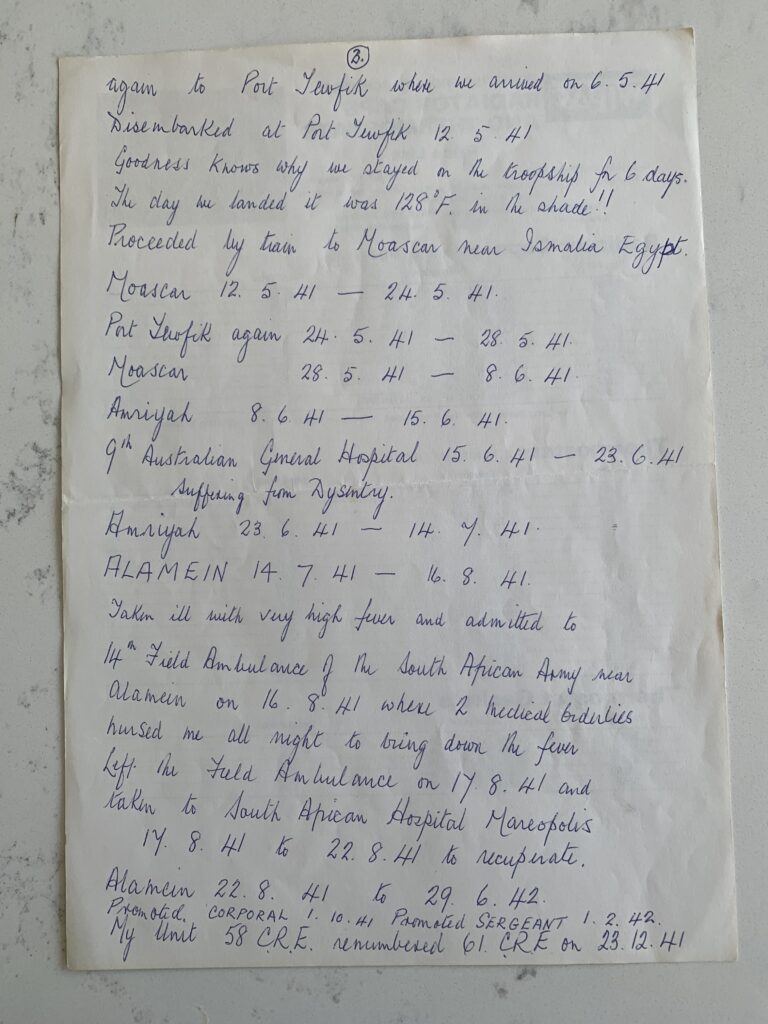 3.
again to Port Tewfik where we arrived on 6.5.41
Disembarked at Port Tewfik 12.5.41
Goodness knows why we stayed on the troopship for 6 days.
The day we landed it was 128°F. in the shade!!
Proceeded by train to Moascar near Ismalia Egypt.
Moascar 12.5.41 — 24.5.41.
Port Tewfik again 24.5.41 — 28.5.41.
Moascar 28.5.41 — 8.6.41.
Amriyah 8.6.41 — 15.6.41.
9th Australian General Hospital 15.6.41 — 23.6.41
suffering from Dysentry.
Amriyah 23.6.41 — 14.7.41.
ALAMEIN 14.7.41 — 16.8.41.
Taken ill with very high fever and admitted to
14th Field Ambulance of the South African Army near
Alamein on 16.8.41 where 2 Medical Orderlies
nursed me all night to bring down the fever
Left the Field Ambulance on 17.8.41 and
taken to South African Hospital Mareopolis
17.8.41 to 22.8.41 to recuperate.
Alamein 22.8.41 to 29.6.42.
Promoted. CORPORAL 1.10.41 Promoted SERGEANT 1.2.42.
My Unit 58 C.R.E. renumbered 61. C.R.E on 23.12.41